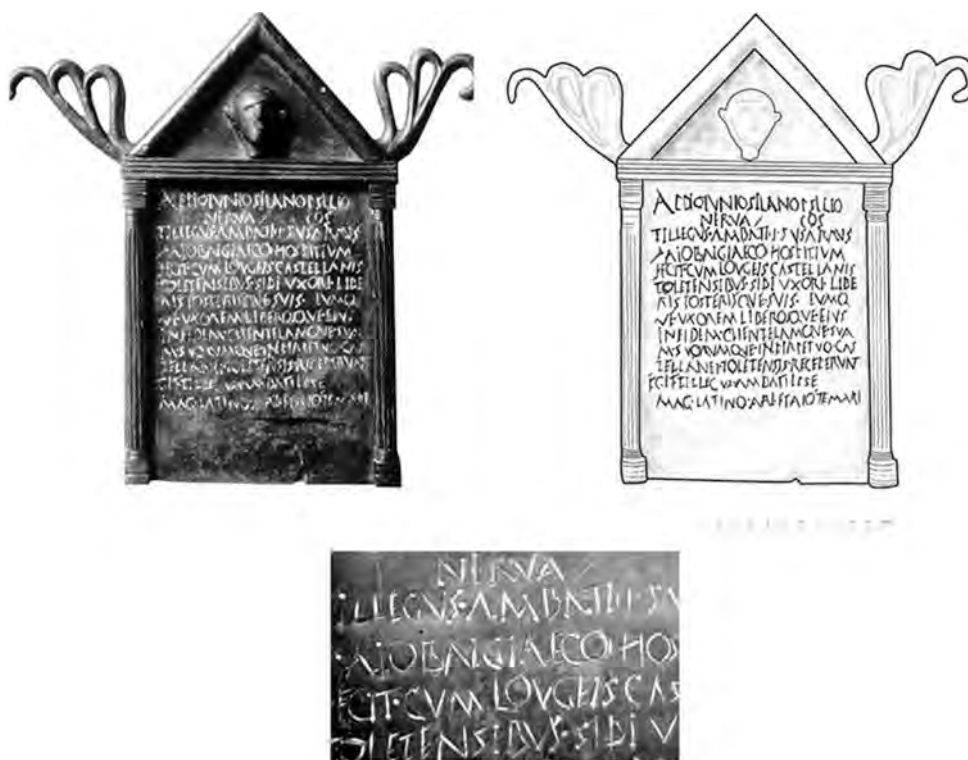 APPIO IVNIO SILANO P SILIO
NERVA COS
TILLEGVS·AMBATI·F·SVSARRVS
AIOBAIGIAECO HOSPITIVM
FECIT·CVM LOVGEIS CASTELLANIS
TOLETENSIBVS·SIBI VXORI·LIBE
RIS POSTERISQVE SVIS· EVMQ
VE VXOREM LIBEROSQVE EIVS
IN FIDEM CLIENTELAMQVE SVA
M SVORVMQVE IN PERPETVO CAS
TELLANEI TOLETENSIS RECEPERVNT
EGIT TILLEGVS AMBATI IPSE
MAG·LATINO·ARI·ET AIO TEMARI
APPIO IVNIO SILANO P SILIO
NERVA COS
TILLEGVS·AMBATI·F·SVSARRVS
AIOBAIGIAECO HOSPITIVM
FECIT·CVM LOVGEIS CASTELLANIS
TOLETENSIBVS·SIBI VXORI·LIBE
RIS POSTERISQVE SVIS· EVMQ
VE VXOREM LIBEROSQVE EIVS
IN FIDEM CLIENTELAMQVE SVA
M SVORVMQVE IN PERPETVO CAS
TELLANEI TOLETENSIS RECEPERVNT
EGIT TILLEGVS AMBATI IPSE
MAG·LATINO·ARI·ET AIO TEMARI
NERVA
ILLEGVS·AMBATI·F·SV
AIOBAIGIAECO HOS
ECIT·CVM LOVGEIS CAS
OLETENSIBVS·SIBI V